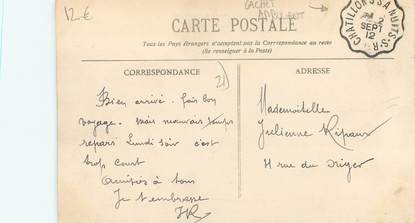 12 €
CACHET
AMBULANT
CHATILLON-S-S A NUITS-S-R
2
SEPT
12
CARTE POSTALE
Tous les Pays étrangers n'acceptent pas la Correspondance au recto
(Se renseigner à la Poste)
CORRESPONDANCE
21
Bien arrivé. fait bon
voyage. Mais mauvais temps
repars Lundi soir c'est
trop court
Amitiés à tous
Je t'embrasse
HR
ADRESSE
Mademoiselle
Julienne Ripaux
11 rue du Niger